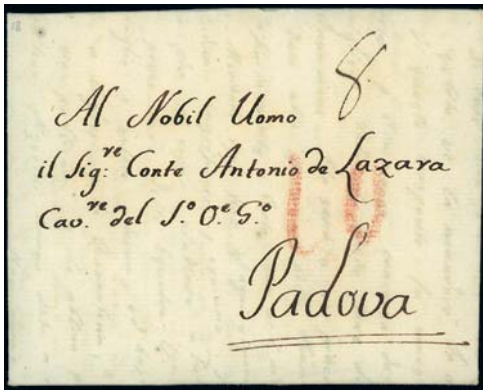 18
8.
Al Nobil Uomo
il Sig:ʳᵉ Conte Antonio de Lazara
Cav.ʳᵉ del S.º O.ᵉ G.º
Padova